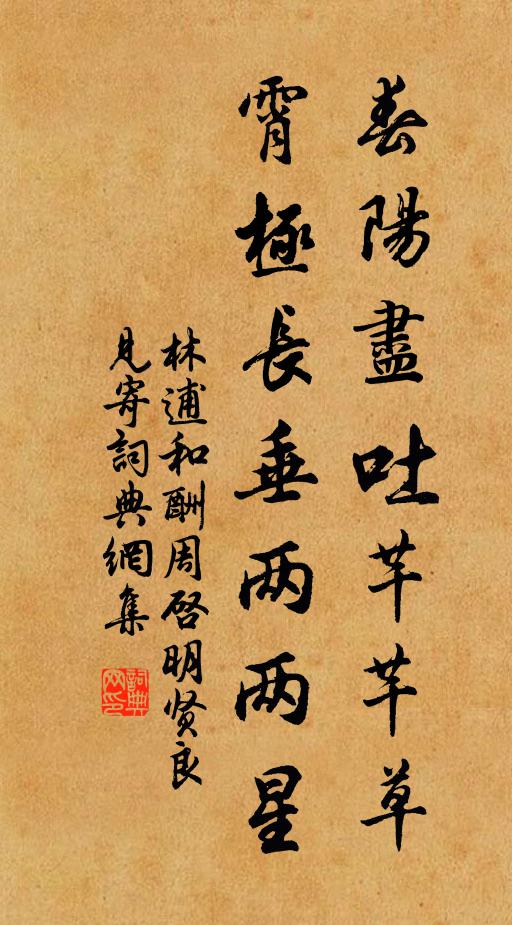 春陽盡吐芊芊草
霄極長垂两两星
林逋和酬周啓明贤良
見寄詞典網集
詞典
网印